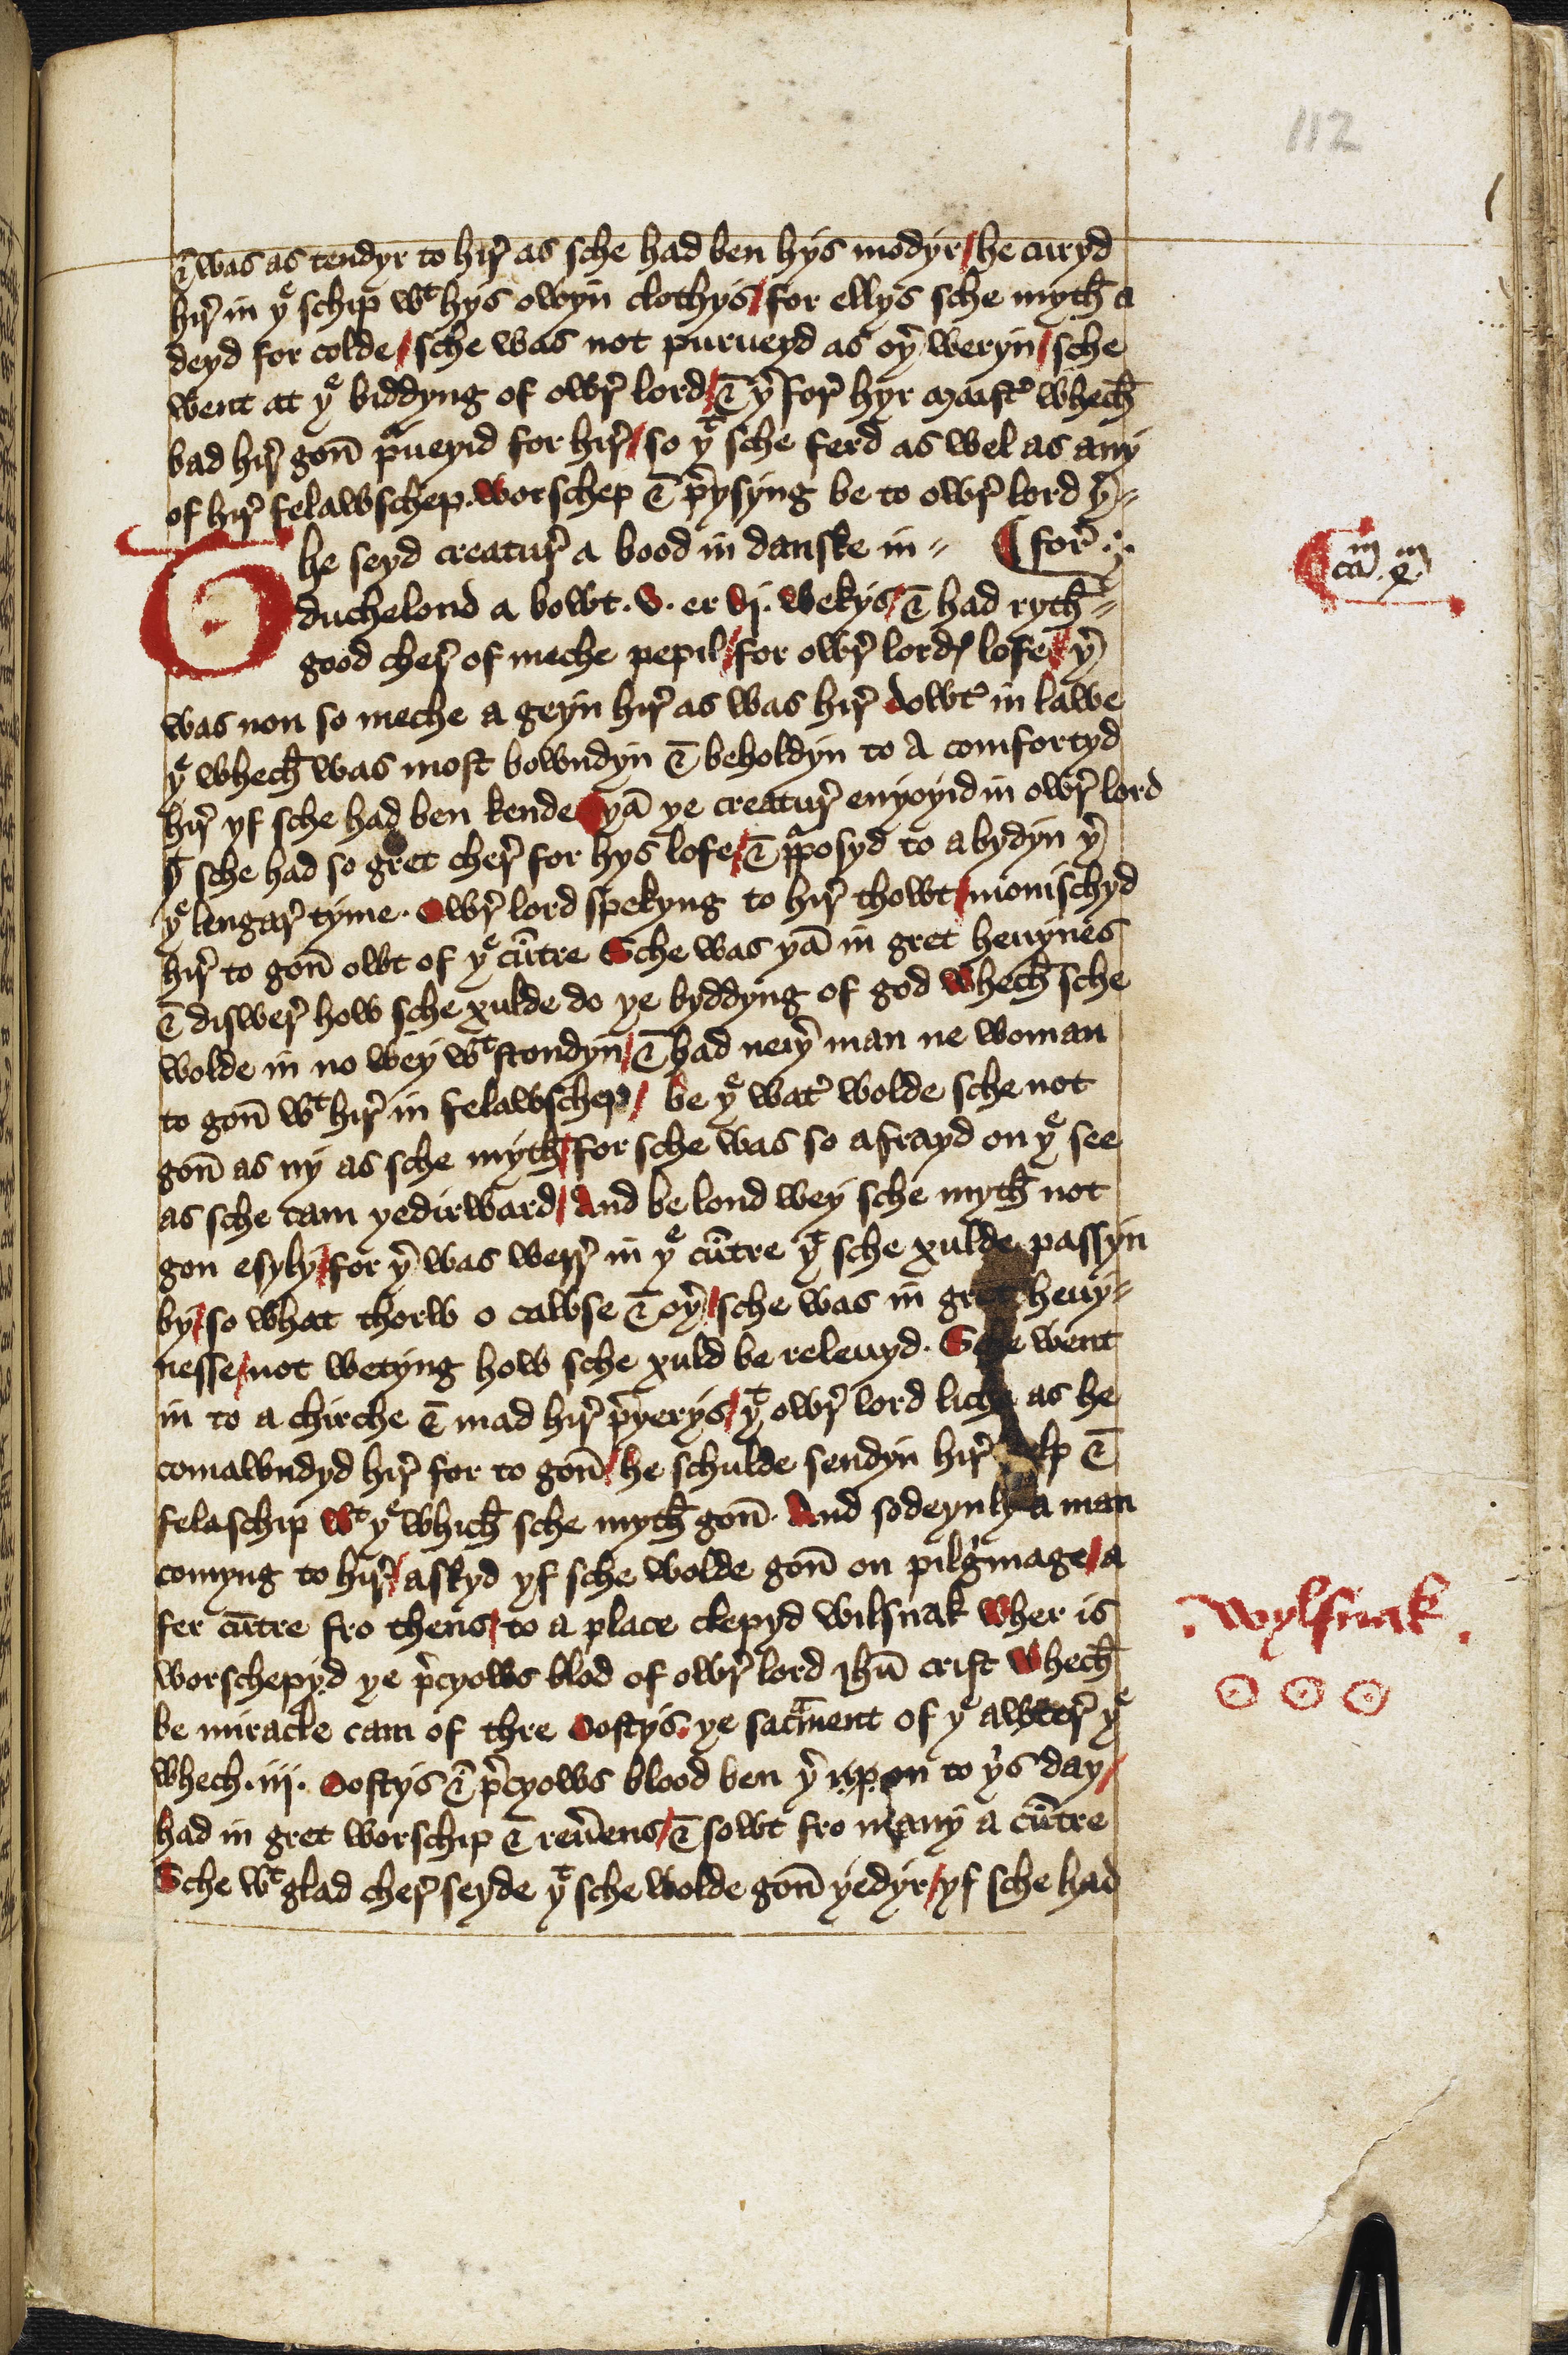 112
& was as tendyr to hir as sche had ben hys modyr / he curyd
hir in yͤ schip wᵗ hys owyn clothys / for ellys sche myth̄ a
deyd for colde / sche was not purueyd as oyʳ weryn / sche
went at yͤ biddyng of owr̄ lord / & yʳfor̄ hyr maistʳ whech̄
bad hir̄ gon̄ pᵘueyid for hir̄ / so yᵗ sche ferd as wel as any
of hir̄ felawschep. worschep & pʳysyng be to owr̄ lord yʳ=
¶ for̄ ⁖
The seyd creatur̄ a bood in danske in=
¶ caᵐ. 4ᵐ
duchelond a bowt .v. er vj. wekys / & had ryth̄=
good cher̄ of meche pepil / for owr̄ lordꝭ lofe / yʳ
was non so meche a geyn hir̄ as was hir̄ dowtʳ in lawe
yͤ whech̄ was most bowndyn & beholdyn to a comfortyd
hir̄ yf sche had ben kende ¶ yā ye creatur̄ enyoyid in owr̄ lord
yᵗ sche had so gret cher̄ for hys lofe / & ꝑposyd to abydyn yʳ
yͤ lengar̄ tyme. Owr̄ lord spekyng to hir̄ thowt / monischyd
hir̄ to gon̄ owt of yͤ cūtre Sche was yā in gret heuynes
& diswer̄ how sche xulde do ye byddyng of god whech̄ sche
wolde in no wey wᵗstondyn / & had neyʳ man ne woman
to gon̄ wᵗ hir̄ in felawschep / be yͤ watʳ wolde sche not
gon̄ as ny as sche myth̄ / for sche was so afrayd on yͤ see
as sche cam yedirward / And be lond wey sche myth̄ not
gon esyly / for yʳ was werr̄ in yͤ cūtre yᵗ sche xulde passyn
by / so what thorw o cawse & oyʳ / sche was in gret heuy=
nesse / not wetyng how sche xuld be releuyd. Sche went
in to a chirche & mad hir̄ pʳyerys / yᵗ owr̄ lord liche as he
comawndyd hir̄ for to gon̄ / he schulde sendyn hir̄ help &
felaschip wᵗ yͤ which̄ sche myth̄ gon̄. And sodeynly a man
comyng to hir̄ / askyd yf sche wolde gon̄ on pilgᵐmage / a
fer cūtre fro thens / to a place clepyd wilsnak wher is
.wylsnak.
worschepyd ye pʳcyows blod of owr̄ lord Ihū crist whech̄
be miracle cam of thre Oostys. ye sacᵃment of yͤ awter̄ yͤ
whech .iij. Oostys & pʳcyows blood ben yʳ upon to yⁱs day /
had in gret worschip & reuʳens / & sowt fro many a cūtre
Sche wᵗ glad cher̄ seyde yᵗ sche wolde gon̄ yedyr / yf sche had